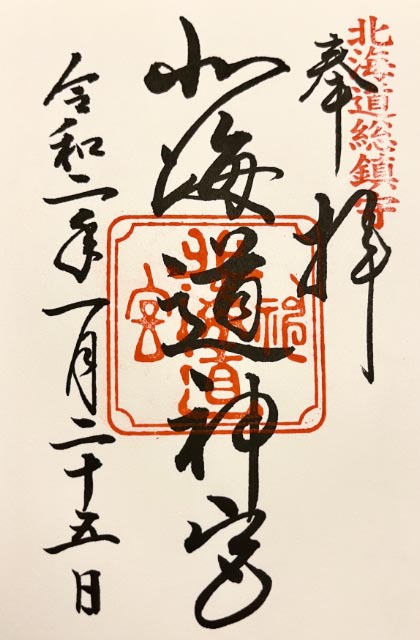 北海道総鎮守
奉拝
北海道神宮
北海道神宮
令和二年一月二十五日